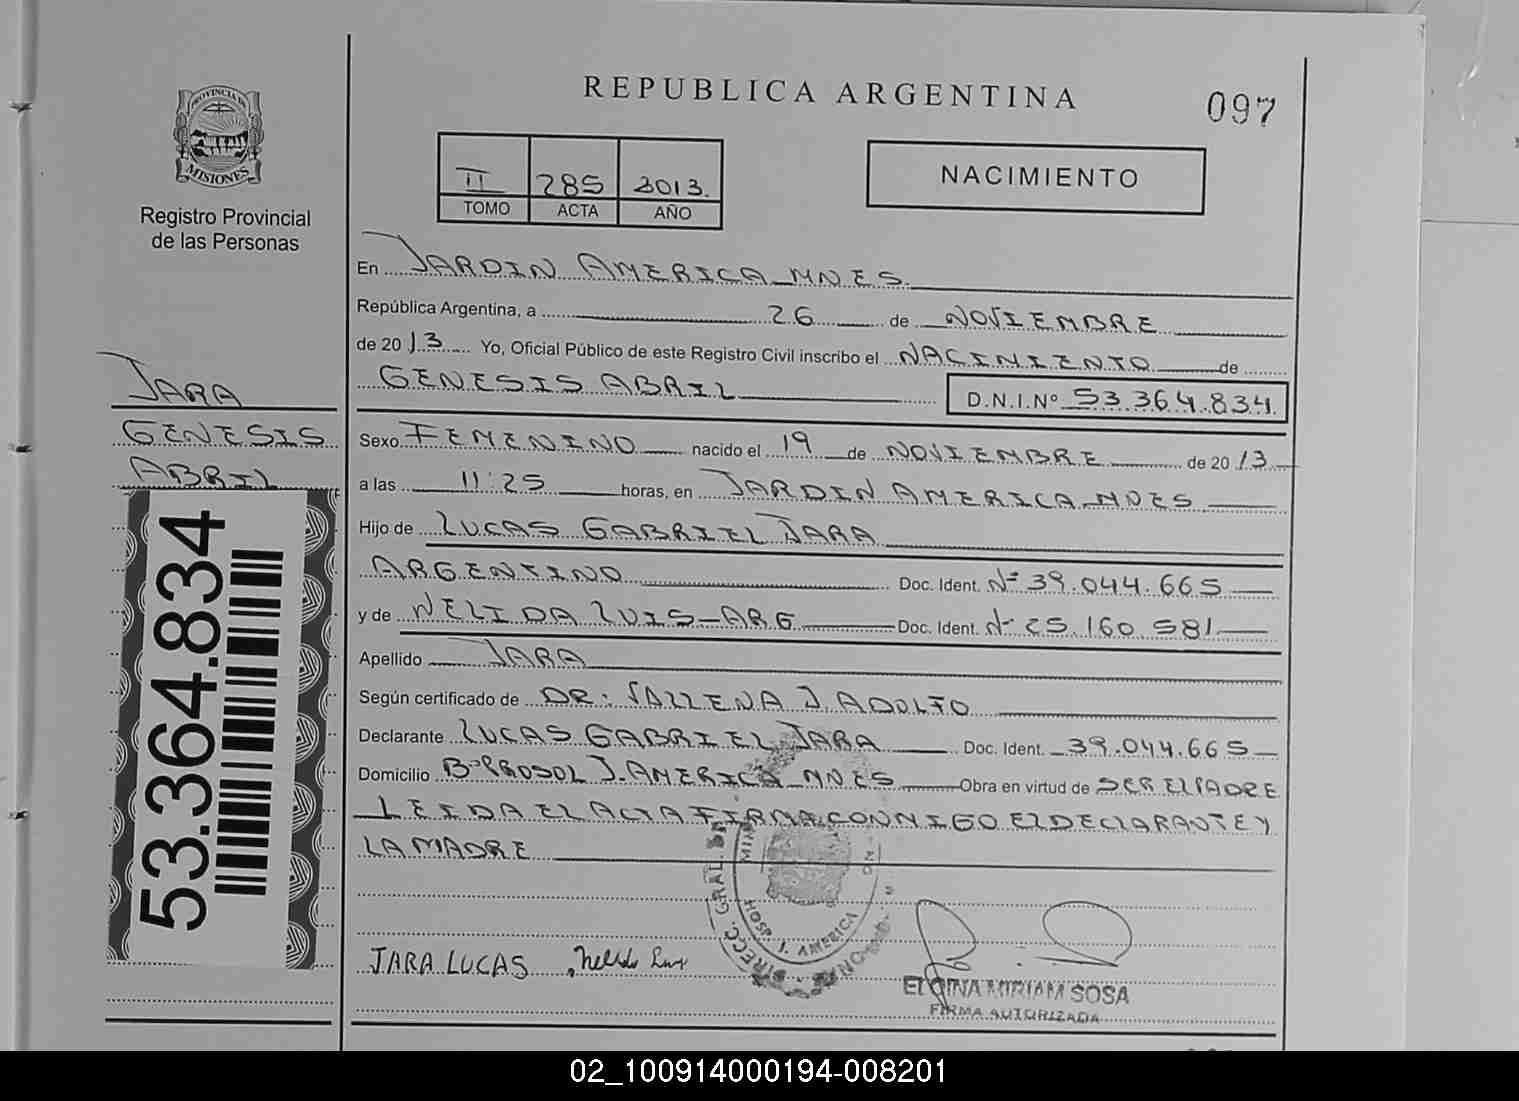 REPUBLICA ARGENTINA
097
PROVINCIA DE
MISIONES
Registro Provincial
de las Personas
II 285 2013.
TOMO ACTA AÑO
NACIMIENTO
En JARDIN AMERICA MNES.
República Argentina, a 26 de NOVIEMBRE
de 20 13 Yo, Oficial Público de este Registro Civil inscribo el NACIMIENTO de
GENESIS ABRIL D.N.I.Nº 53.364.834
JARA
GENESIS
ABRIL
53.364.834
Sexo FEMENINO nacido el 19 de NOVIEMBRE de 20 13
a las 11:25 horas, en JARDIN AMERICA MNES
Hijo de LUCAS GABRIEL JARA
ARGENTINO Doc. Ident. Nº 39.044.665
y de NELIDA LUIS-ARG Doc. Ident. Nº 25.160.581
Apellido JARA
Según certificado de DR: VALLENA J. ADOLFO
Declarante LUCAS GABRIEL JARA Doc. Ident. 39.044.665
Domicilio Bº PROSOL J. AMERICA MNES Obra en virtud de SER EL PADRE
LEIDA EL ACTA FIRMA CONMIGO EL DECLARANTE Y
LA MADRE
DIRECC. GRAL.
HOSP. J. AMERICA
JARA LUCAS Nelida Luis
MIRIAM SOSA
FIRMA AUTORIZADA
02_100914000194-008201